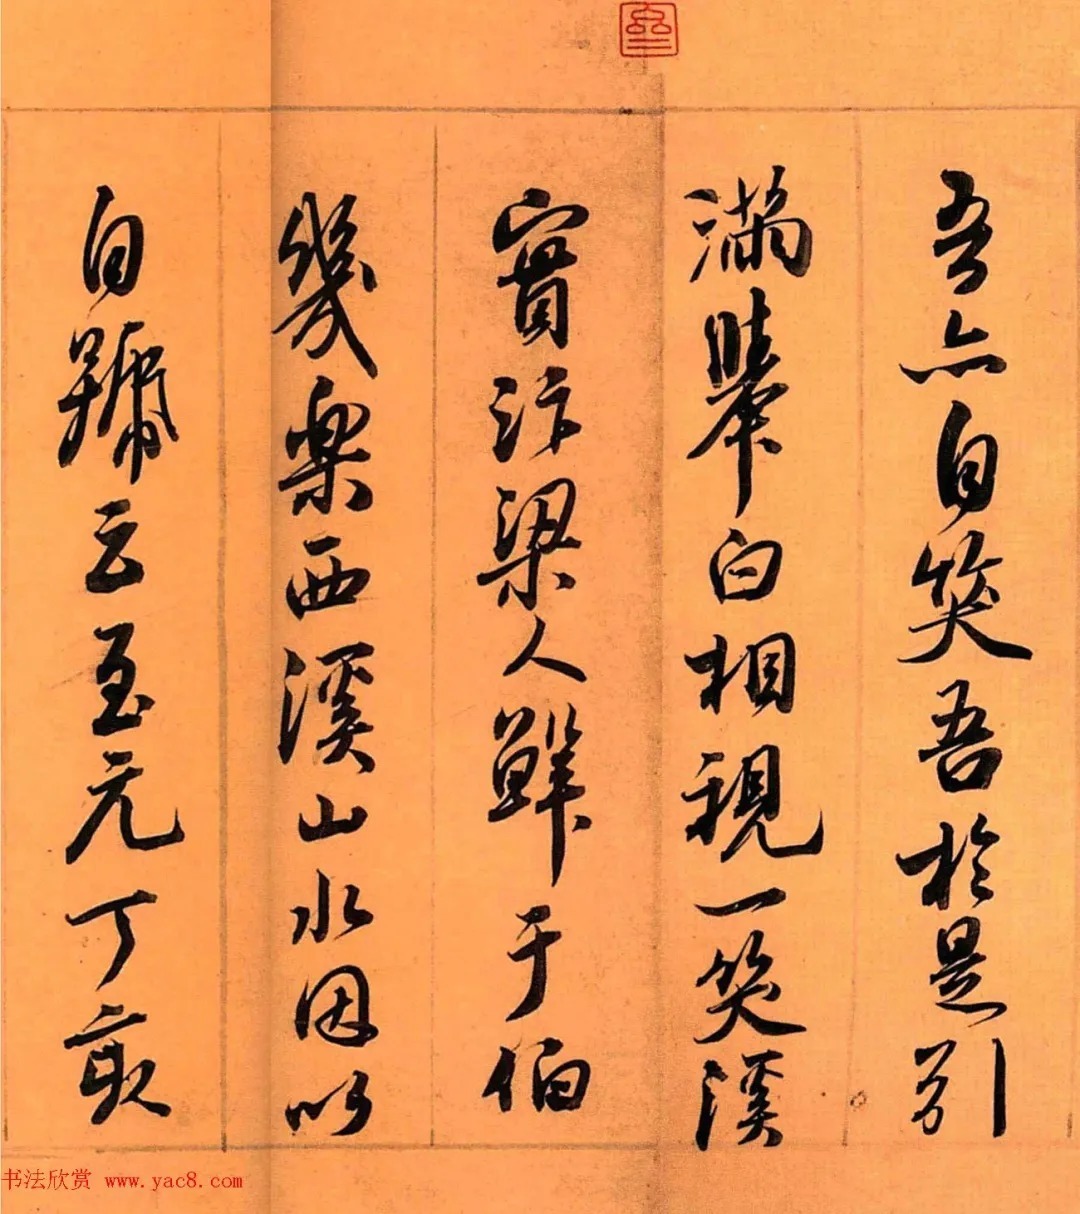 吾亦自笑吾於是引
滿舉白相視一笑溪
實汴梁人鮮于伯
幾樂西溪山水因以
自號云至元丁亥
书法欣赏 www.yac8.com